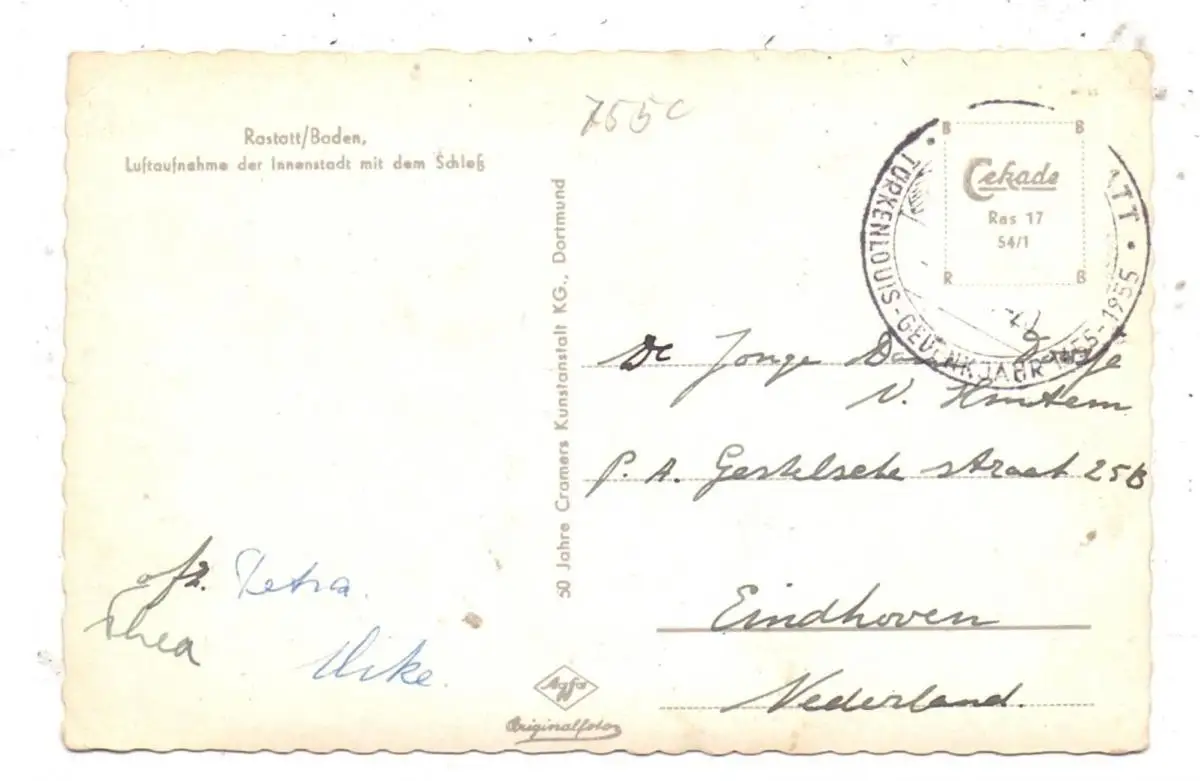 Rastatt/Baden,
Luftaufnahme der Innenstadt mit dem Schloß
50 Jahre Cramers Kunstanstalt KG., Dortmund
755c
B B
Cekade
Ras 17
54/1
R B
ATT • TÜRKENLOUIS-GEDENKJAHR 1655-1955 •
De Jonge
V.
P. A. Gestelsche straat 25B
Eindhoven
Nederland.
afz. Petra.
Thea
Ulike.
Agfa
Originalfoto